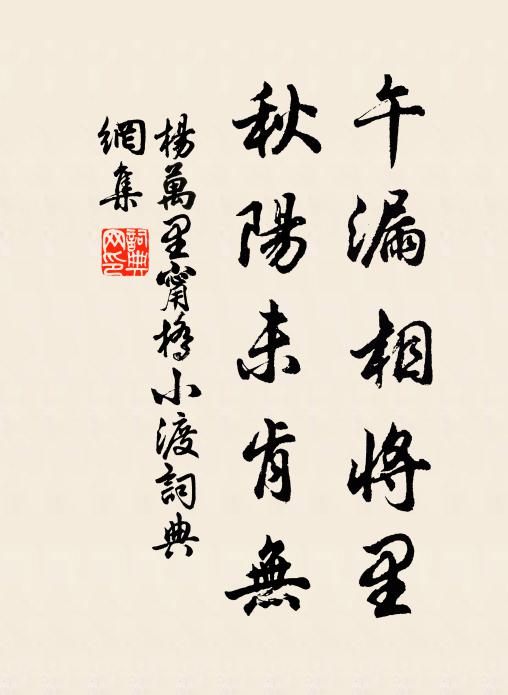 午漏相將里
秋陽未肯無
楊萬里甯橋小渡詞典
網集
詞典
网印